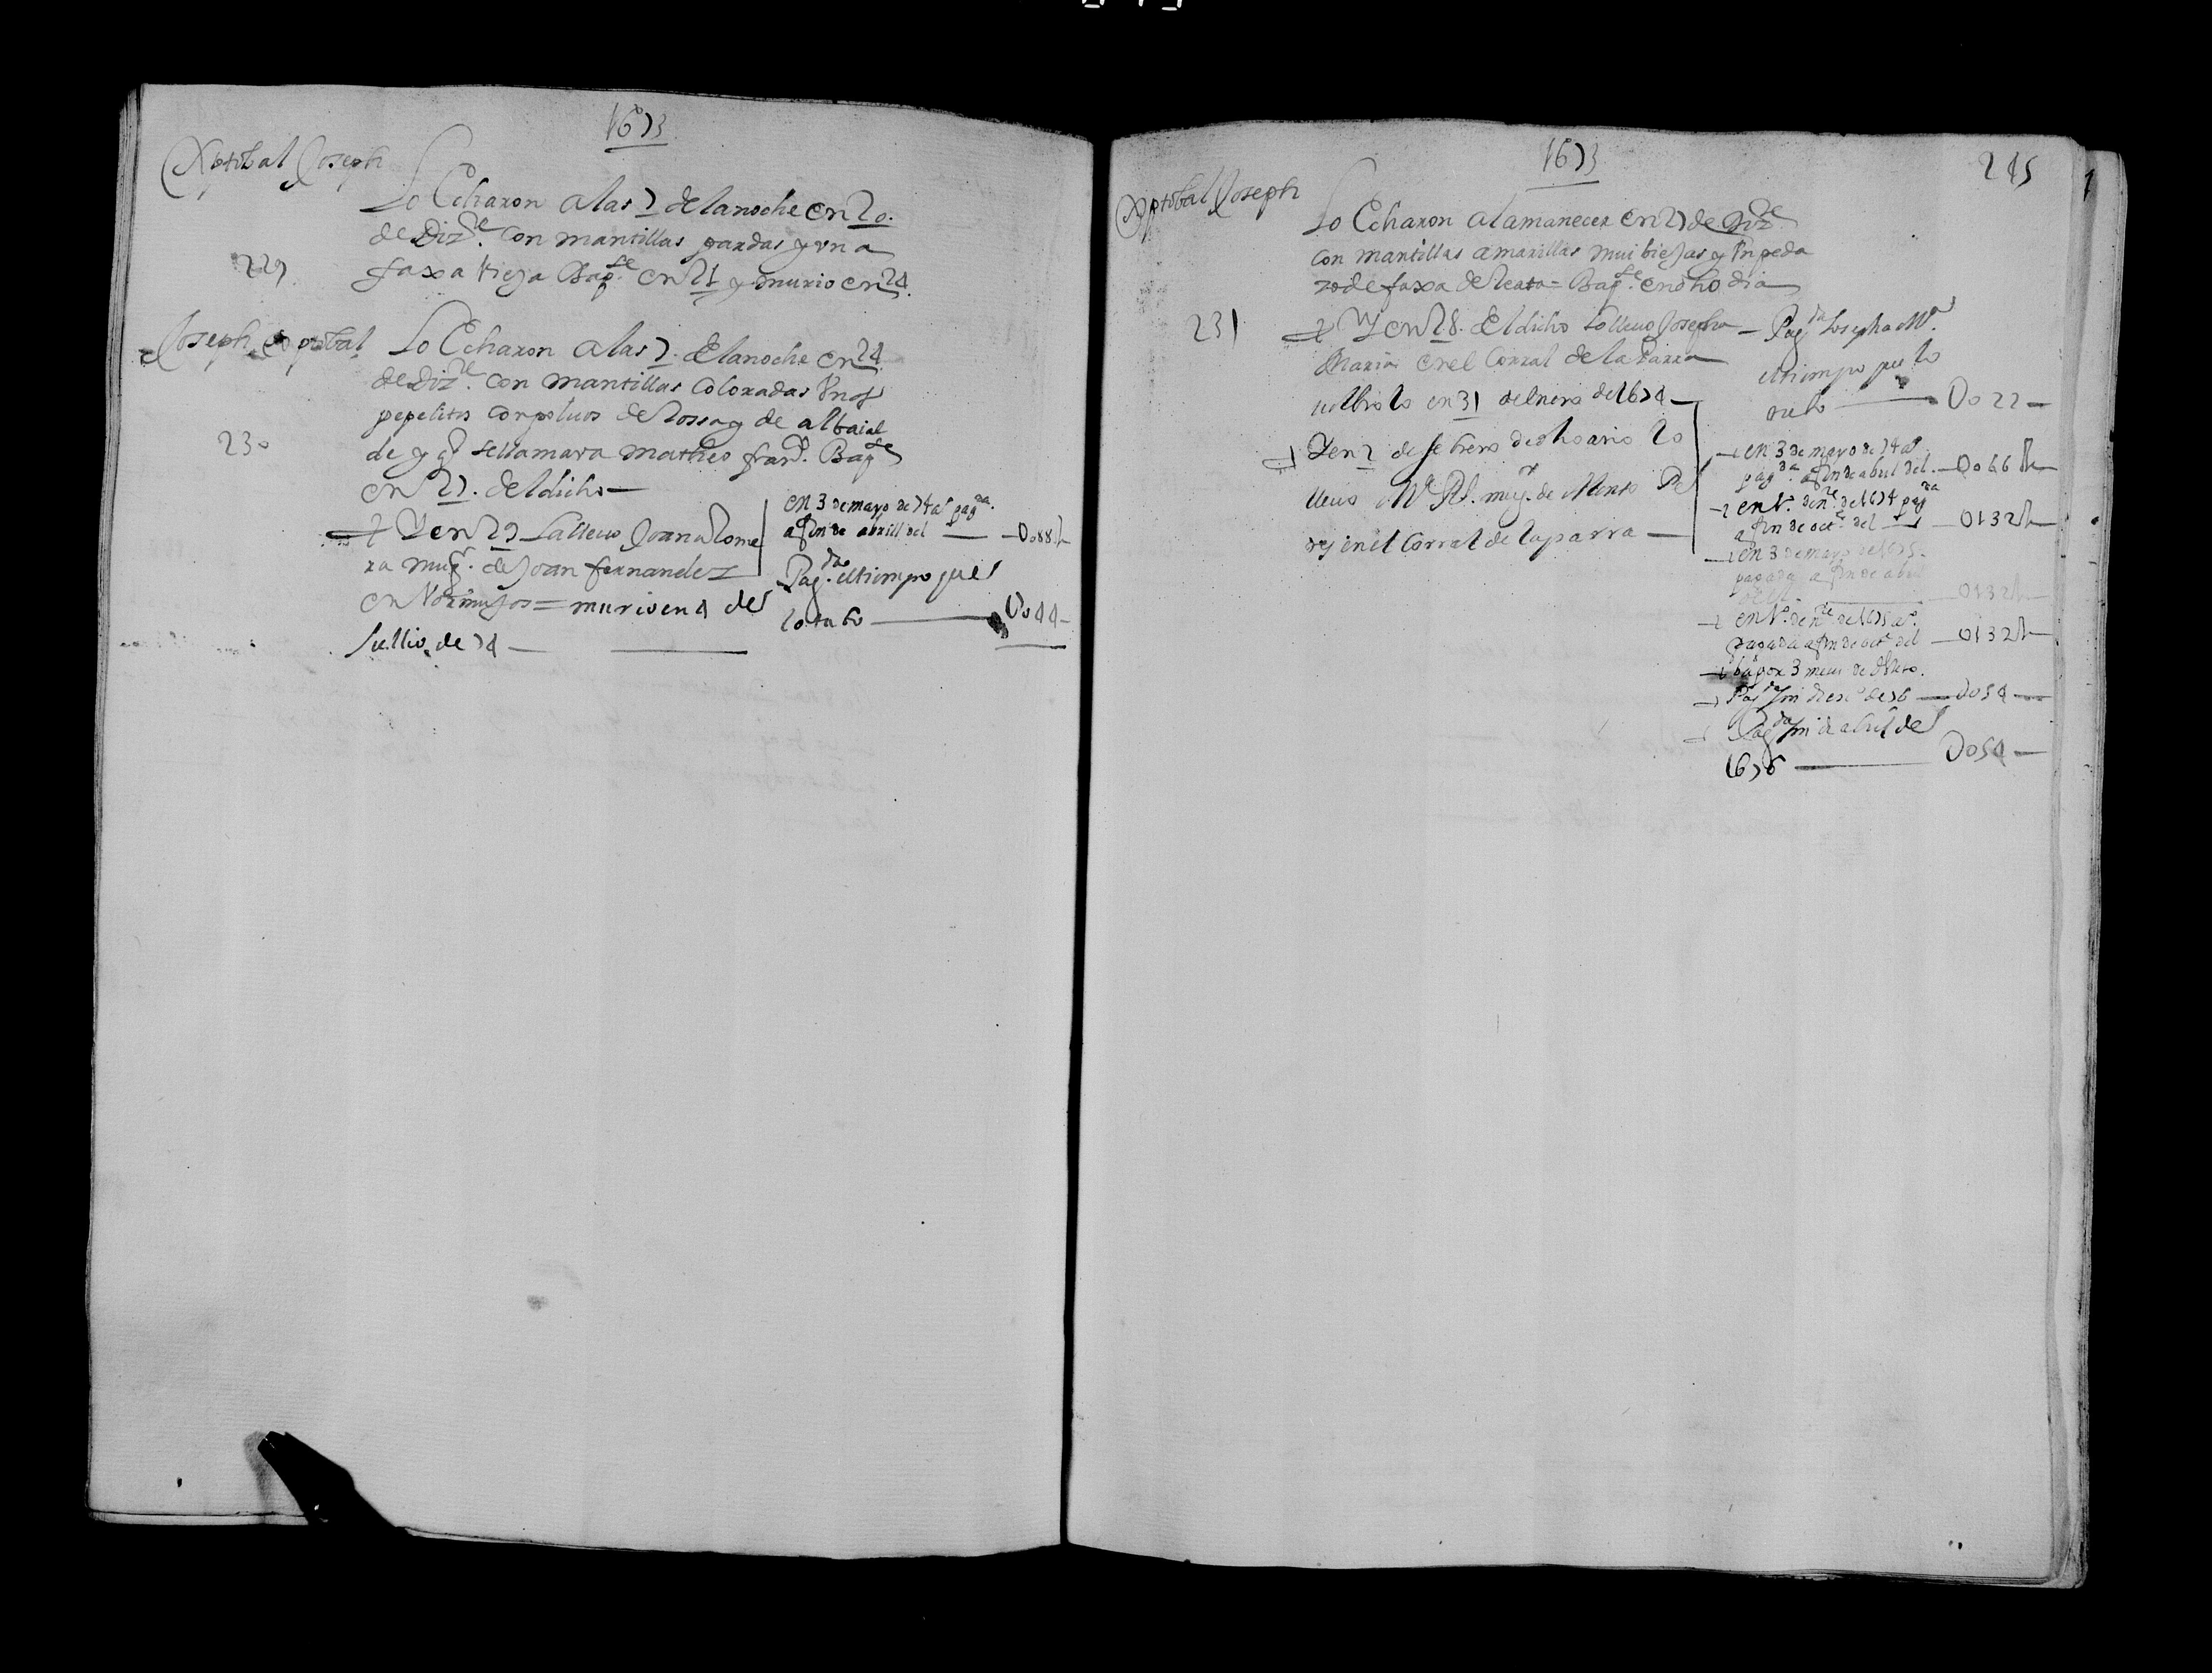 1673
Xptobal Joseph
Lo Echaron a las 7 de la noche en 20
de Diz.re con mantillas pardas y vna
faxa vieja Bap.se en 21 y murio en 24.
229
Joseph Xptobal
Lo Echaron a las 7. de la noche en 24
de Diz.re con mantillas coloradas Vnos
papelitos con poluos de Rossa y de albaial
de y q.e se llamara Matheo fran.co Bap.se
230
en 27. del dicho
Y en 29 La lleuo Joana Rome
ra mug.r de Joan fernandez
en = murio en 4 de
Jullio de 74
en 3 de mayo de 74 a.s pag.da
a fin de abrill del — 0088 r
Pag.da el tiempo que
lo tubo — 0044
1673
245
Xptobal Joseph
Lo Echaron al amanecer en 27 de Diz.e
con mantillas amarillas mui biejas y Vn peda
zo de faxa de Reata = Bap.se en dho dia
231
Y en 28. del dicho Lo lleuo Josepha
Maria en el Corral de la Parra
uolbiolo en 31 de henero de 1674
Y en 2 de febrero de dho año lo
lleuo M.a mug.r de
en el Corral de la parra
Pag.da Josepha M.a
el tiempo que lo
tubo — 0022
en 3 de mayo de 74 a.s
pag.da a fin de abril del — 0066 r
en p.o de n.re de 1674 pag.da
a fin de oct.e del — 0132 r
en 3 de mayo de 1675
pagada a fin de abril
del — 0132 r
en p.o de n.re de 1675 a.s
pagada a fin de oct.e del — 0132 r
por 3 meses de
Pag.da fin de en.o de 76 — 0054
Pag.da fin de abril de
1676 — 0054